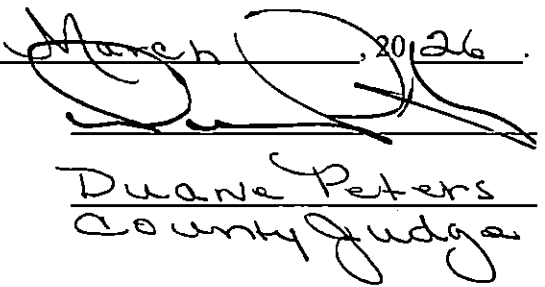 March, 2026.
Duane Peters
County Judge